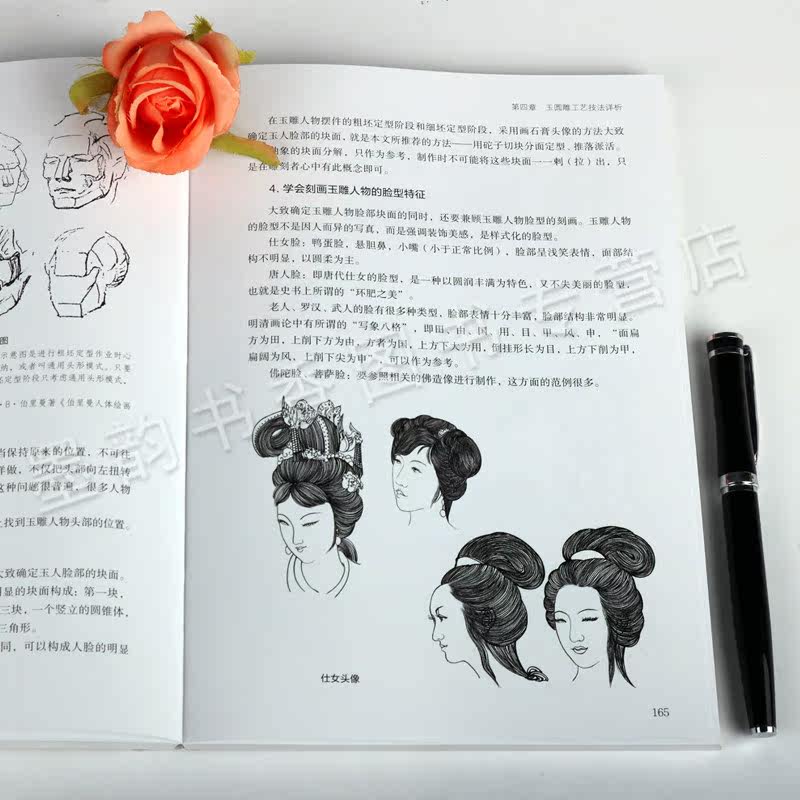 图
示意图是进行粗坯定型作业时心
的，或者叫通用头形模式。只要
定型阶段只考虑通用头形模式，
·B·伯里曼著《伯里曼人体绘画
当保持原来的位置，不可往
样做，不仅把头部向左扭转
这种问题很普遍，很多人物
上找到玉雕人物头部的位置。
大致确定玉人脸部的块面。
明显的块面构成；第一块，
三块，一个竖立的圆锥体，
三角形。
同，可以构成人脸的明显
第四章 玉圆雕工艺技法详析
在玉雕人物摆件的粗坯定型阶段和细坯定型阶段，采用画石膏头像的方法大致
确定玉人脸部的块面，就是本文所推荐的方法——用砣子切块分面定型、推落派活。
抽象的块面分解，只作为参考，制作时不可能将这些块面一一剩（拉）出，只
是在雕刻者心中有此概念即可。
4. 学会刻画玉雕人物的脸型特征
大致确定玉雕人物脸部块面的同时，还要兼顾玉雕人物脸型的刻画。玉雕人物
的脸型不是因人而异的写真，而是强调装饰美感，是样式化的脸型。
仕女脸：鸭蛋脸，悬胆鼻，小嘴（小于正常比例），脸部呈浅笑表情，面部结
构不明显，以圆柔为主。
唐人脸：即唐代仕女的脸型，是一种以圆润丰满为特色，又不失美丽的脸型，
也就是史书上所谓的“环肥之美”。
老人、罗汉、武人的脸有很多种类型，脸部表情十分丰富，脸部结构非常明显。
明清画论中有所谓的“写象八格”，即田、由、国、用、目、甲、风、申，“面扁
方为田，上削下方为由，方者为国，上方下大为用，倒挂形长为目，上方下削为甲，
扁阔为风，上削下尖为申”，可以作为参考。
佛陀脸、菩萨脸：要参照相关的佛造像进行制作，这方面的范例很多。
仕女头像
165
墨韵书香图书专营店